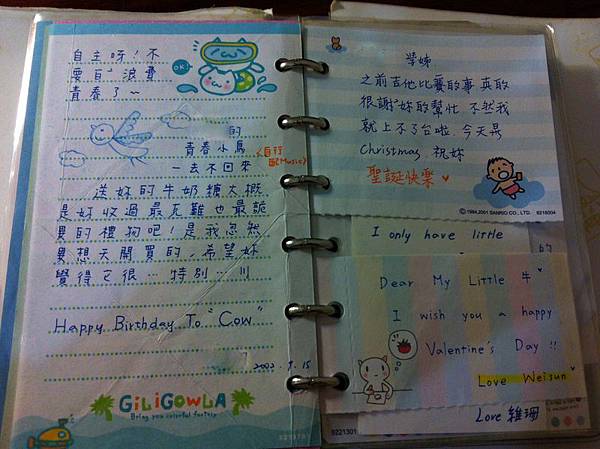 自主呀！不
要自 浪費
青春了～
OK!
的
青春小鳥
一去不回來
<自行
配Music>
送妳的牛奶糖大概
是妳收過最 也最詭
異的禮物吧！是我忽然
異想天開買的，希望妳
覺得它很…特別…
Happy Birthday To "Cow"
GiLiGOWLA
Bring you colorful fantasy
學姊
之前吉他比賽的事真的
很謝 妳的幫忙 不然我
就上不了台啦 今天是
Christmas 祝妳
聖誕快樂
© 1994,2001 SANRIO CO., LTD.
I only have little
的
Dear My Little 牛
I wish you a happy
Valentine's Day !!
Love Weisun
Love 維珊
8221301